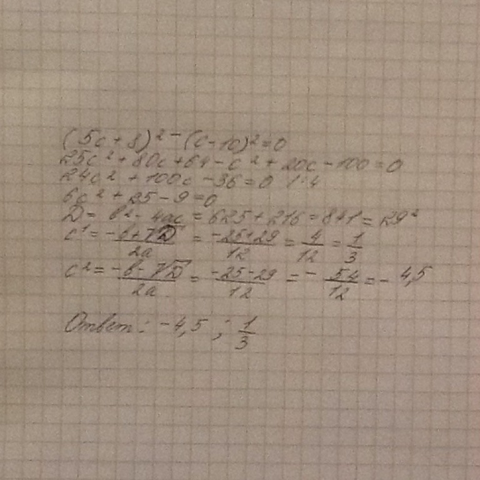 (5c+8)²-(c-10)²=0
25c²+80c+64-c²+20c-100=0
24c²+100c-36=0 |:4
6c²+25-9=0
D= b²-4ac=625+216=841=29²
c¹=\frac{-b+√D}{2a}=\frac{-25+29}{12}=\frac{4}{12}=\frac{1}{3}
c²=\frac{-b-√D}{2a}=\frac{-25-29}{12}=-\frac{54}{12}=-4,5
Ответ: -4,5; \frac{1}{3}